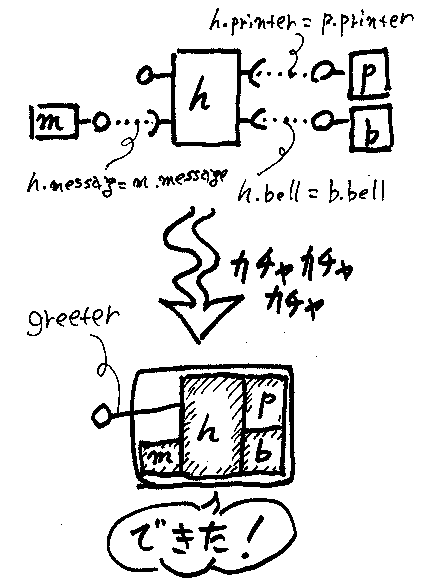 h.printer = p.printer
h
p
m
b
h.message = m.message
h.bell = b.bell
カチャカチャ
カチャ
greeter
h
p
m
b
できた!